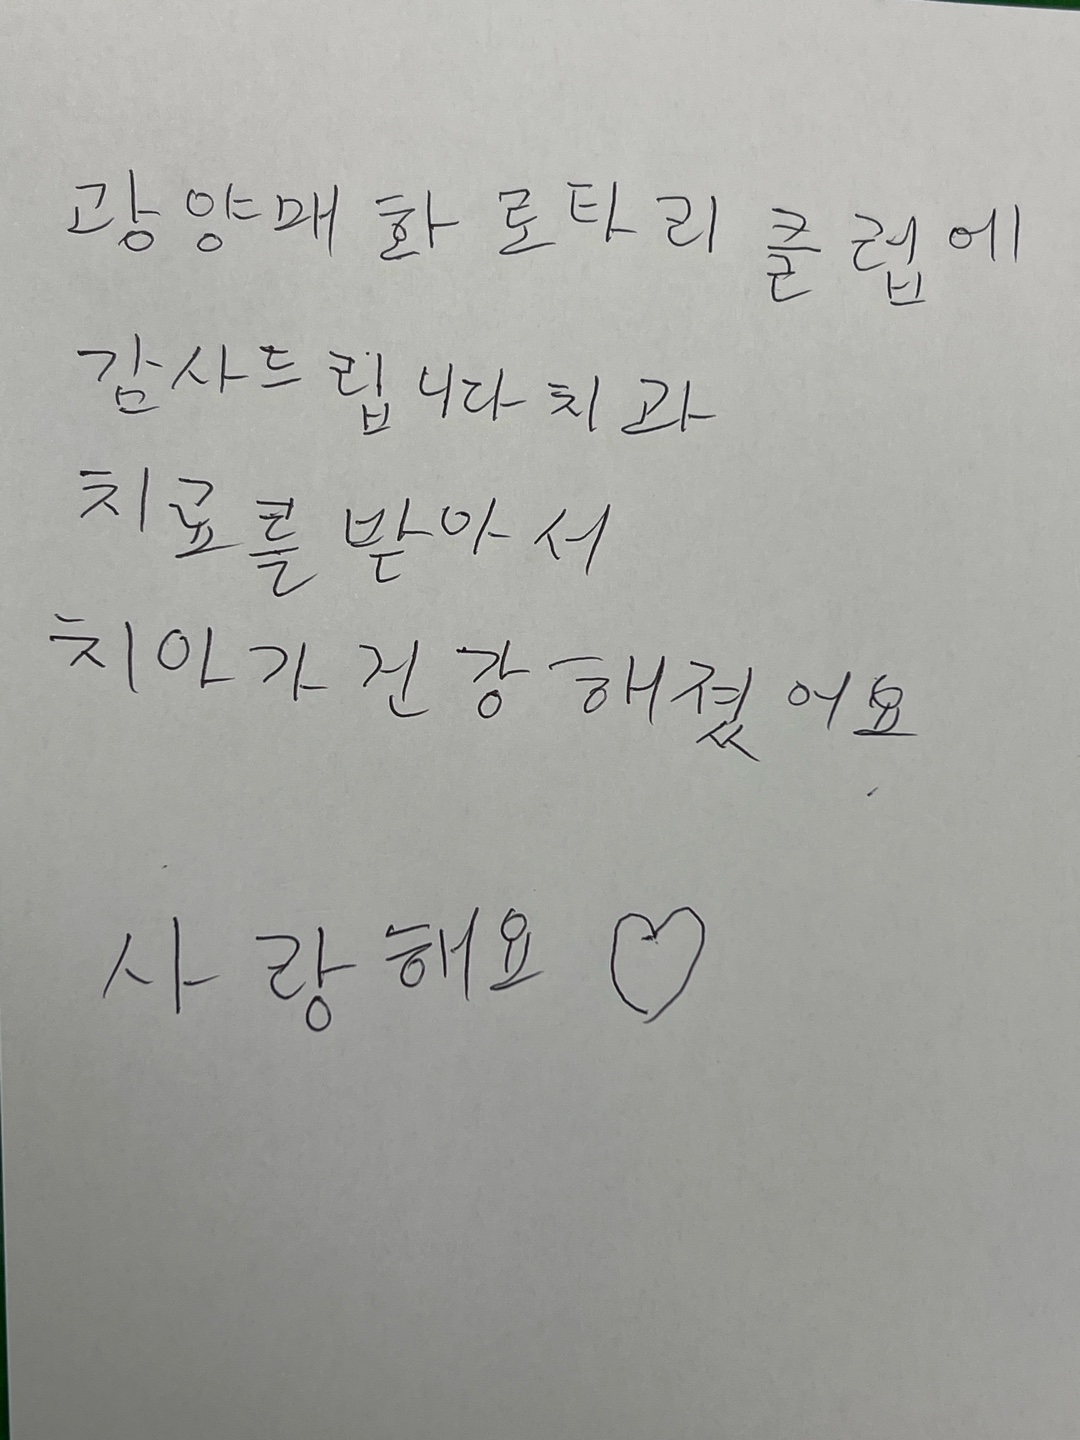 광양매화로타리클럽에
감사드립니다치과
치료를받아서
치아가건강해졌어요
사랑해요♡